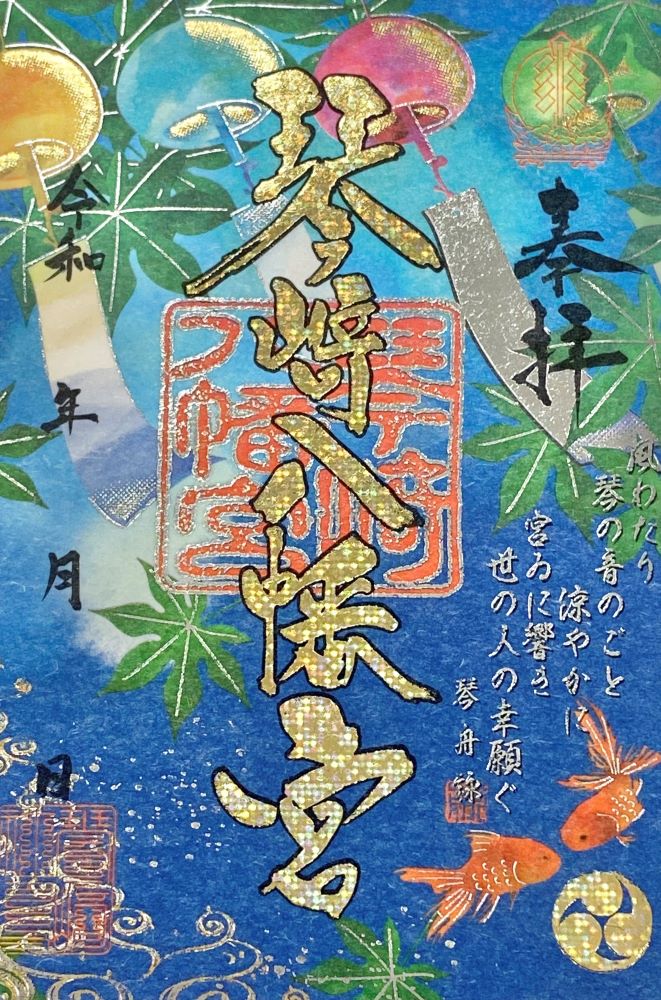 奉拝
風わたり
琴の音のごと
涼やかに
宮ゐに響き
世の人の幸願ぐ
琴舟詠
琴崎八幡宮
琴崎八幡宮
令和 年 月 日